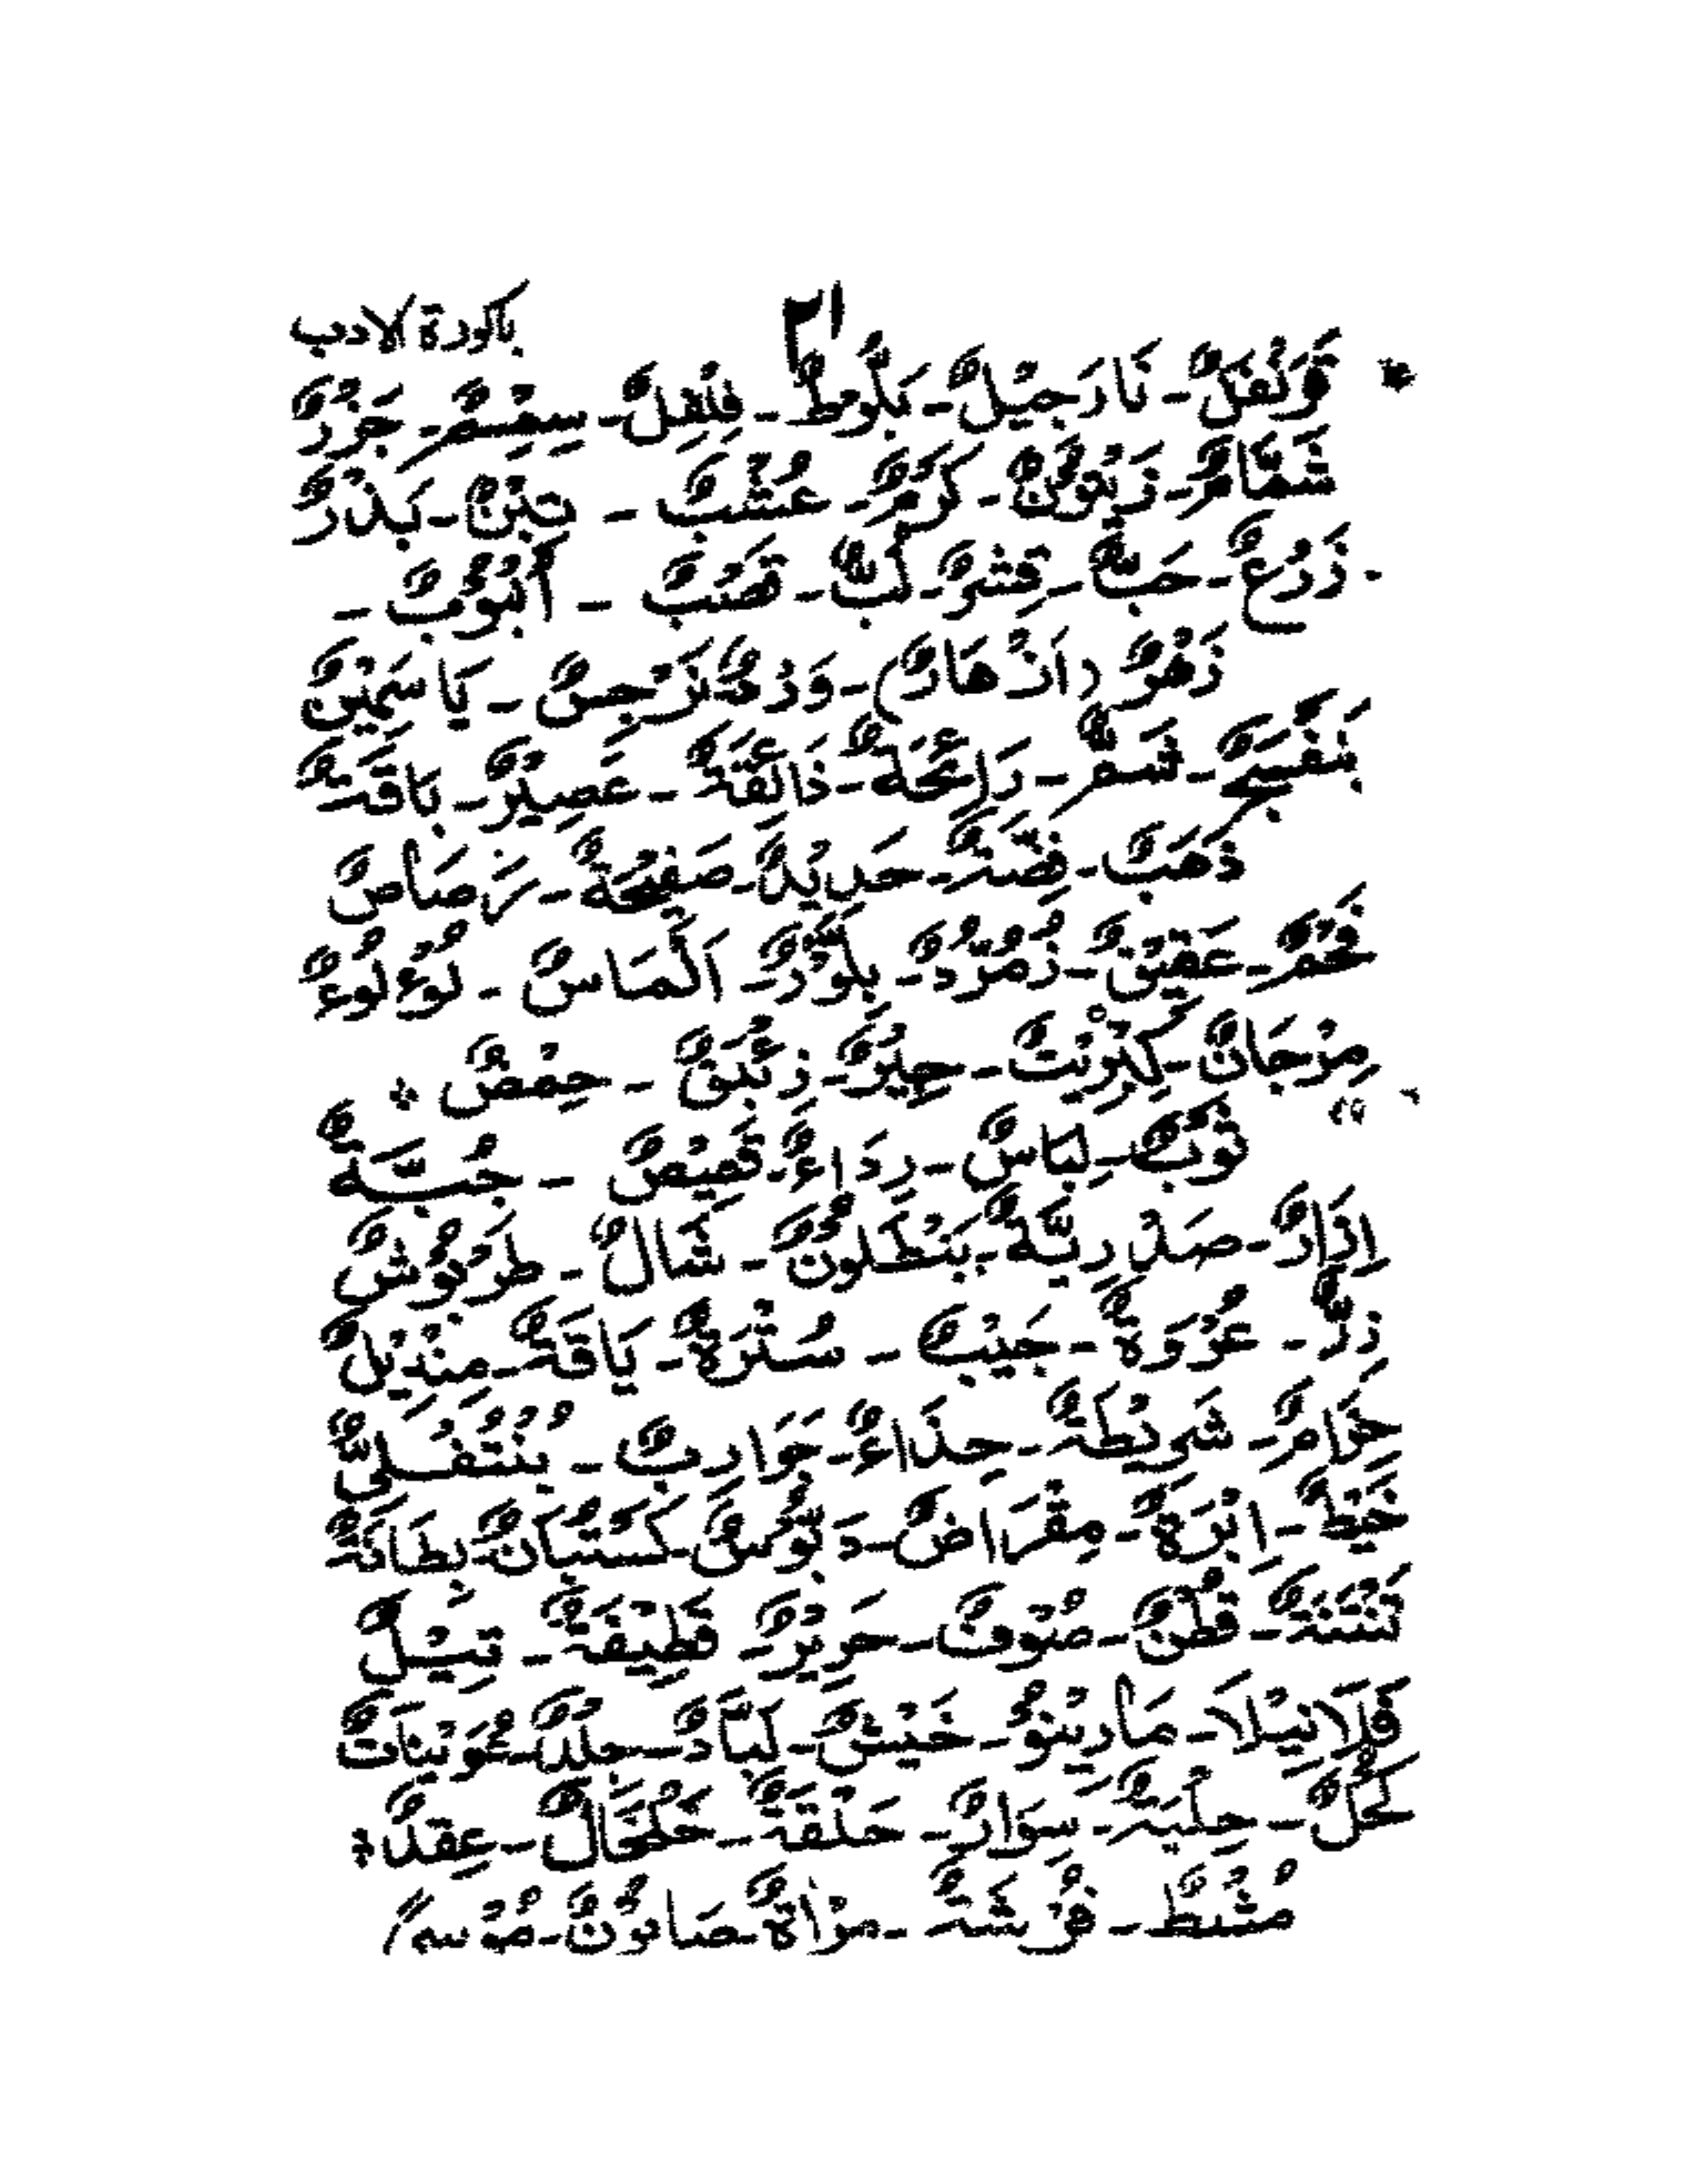 باكورة الادب
٢١
قَرَنْفَلٌ - نَارَجِيْلٌ - بَلُّوطٌ - فِلْفِلٌ - سِمْسِمٌ - جَزَرٌ
شَمَّامٌ - زَيْتُوْنٌ - كَرْمٌ - عُشْبٌ - تِبْنٌ - بَذْرٌ
زَرْعٌ - حَبَّةٌ - قِشْرٌ - لُبٌّ - قَصَبٌ - اُنْبُوْبٌ -
زَهْرٌ (اَزْهَارٌ) - وَرْدٌ نَرْجِسٌ - يَاسَمِيْنٌ
بَنَفْسَجٌ - شَمٌّ - رَائِحَةٌ - ذَائِقَةٌ - عَصِيْرٌ - بَاقَةٌ
ذَهَبٌ - فِضَّةٌ - حَدِيْدٌ - صَفِيْحَةٌ - رَصَاصٌ
فَحْمٌ - عَقِيْقٌ - زُمُرُّدٌ - بِلَّوْرٌ - اَلْمَاسٌ - لُوءْلُوءٌ
مِرْجَانٌ - كِبْرِيْتٌ - حِبْرٌ - زِئْبَقٌ - حِمْصٌ *
ثَوْبٌ - لِبَاسٌ - رِدَاءٌ - قَمِيْصٌ - جُبَّةٌ
اِزَارٌ - صَدْرِيَّةٌ - بَنْطَلُوْنٌ - شَالٌ - طَرْبُوْشٌ
زِرٌّ - عُرْوَةٌ - جَيْبٌ - سُتْرَةٌ - يَاقَةٌ - مِنْدِيْلٌ
حِزَامٌ - شَرِيْطَةٌ - حِذَاءٌ - جَوَارِبٌ - يُنْتُفُلِيٌّ
خَيْطٌ - اِبْرَةٌ - مِقْرَاضٌ - دَبُّوْسٌ - كَسْتُبَانٌ - بِطَانَةٌ
تَنْتَنَةٌ - قُطْنٌ - صُوْفٌ - حَرِيْرٌ - قَطِيْفَةٌ - تِيْلٌ
فَلَانِيْلَا - مَارِيْنُوْ - خَيْشٌ - لَبَّادٌ - جِلْدٌ - عُوَيْنَاتٌ
كُحْلٌ - حِلْيَةٌ - سِوَارٌ - حَلْقَةٌ - خَلْخَالٌ - عِقْدٌ *
مُشْطٌ - فُرْشَةٌ - مِرْاةٌ - صَابُوْنٌ -